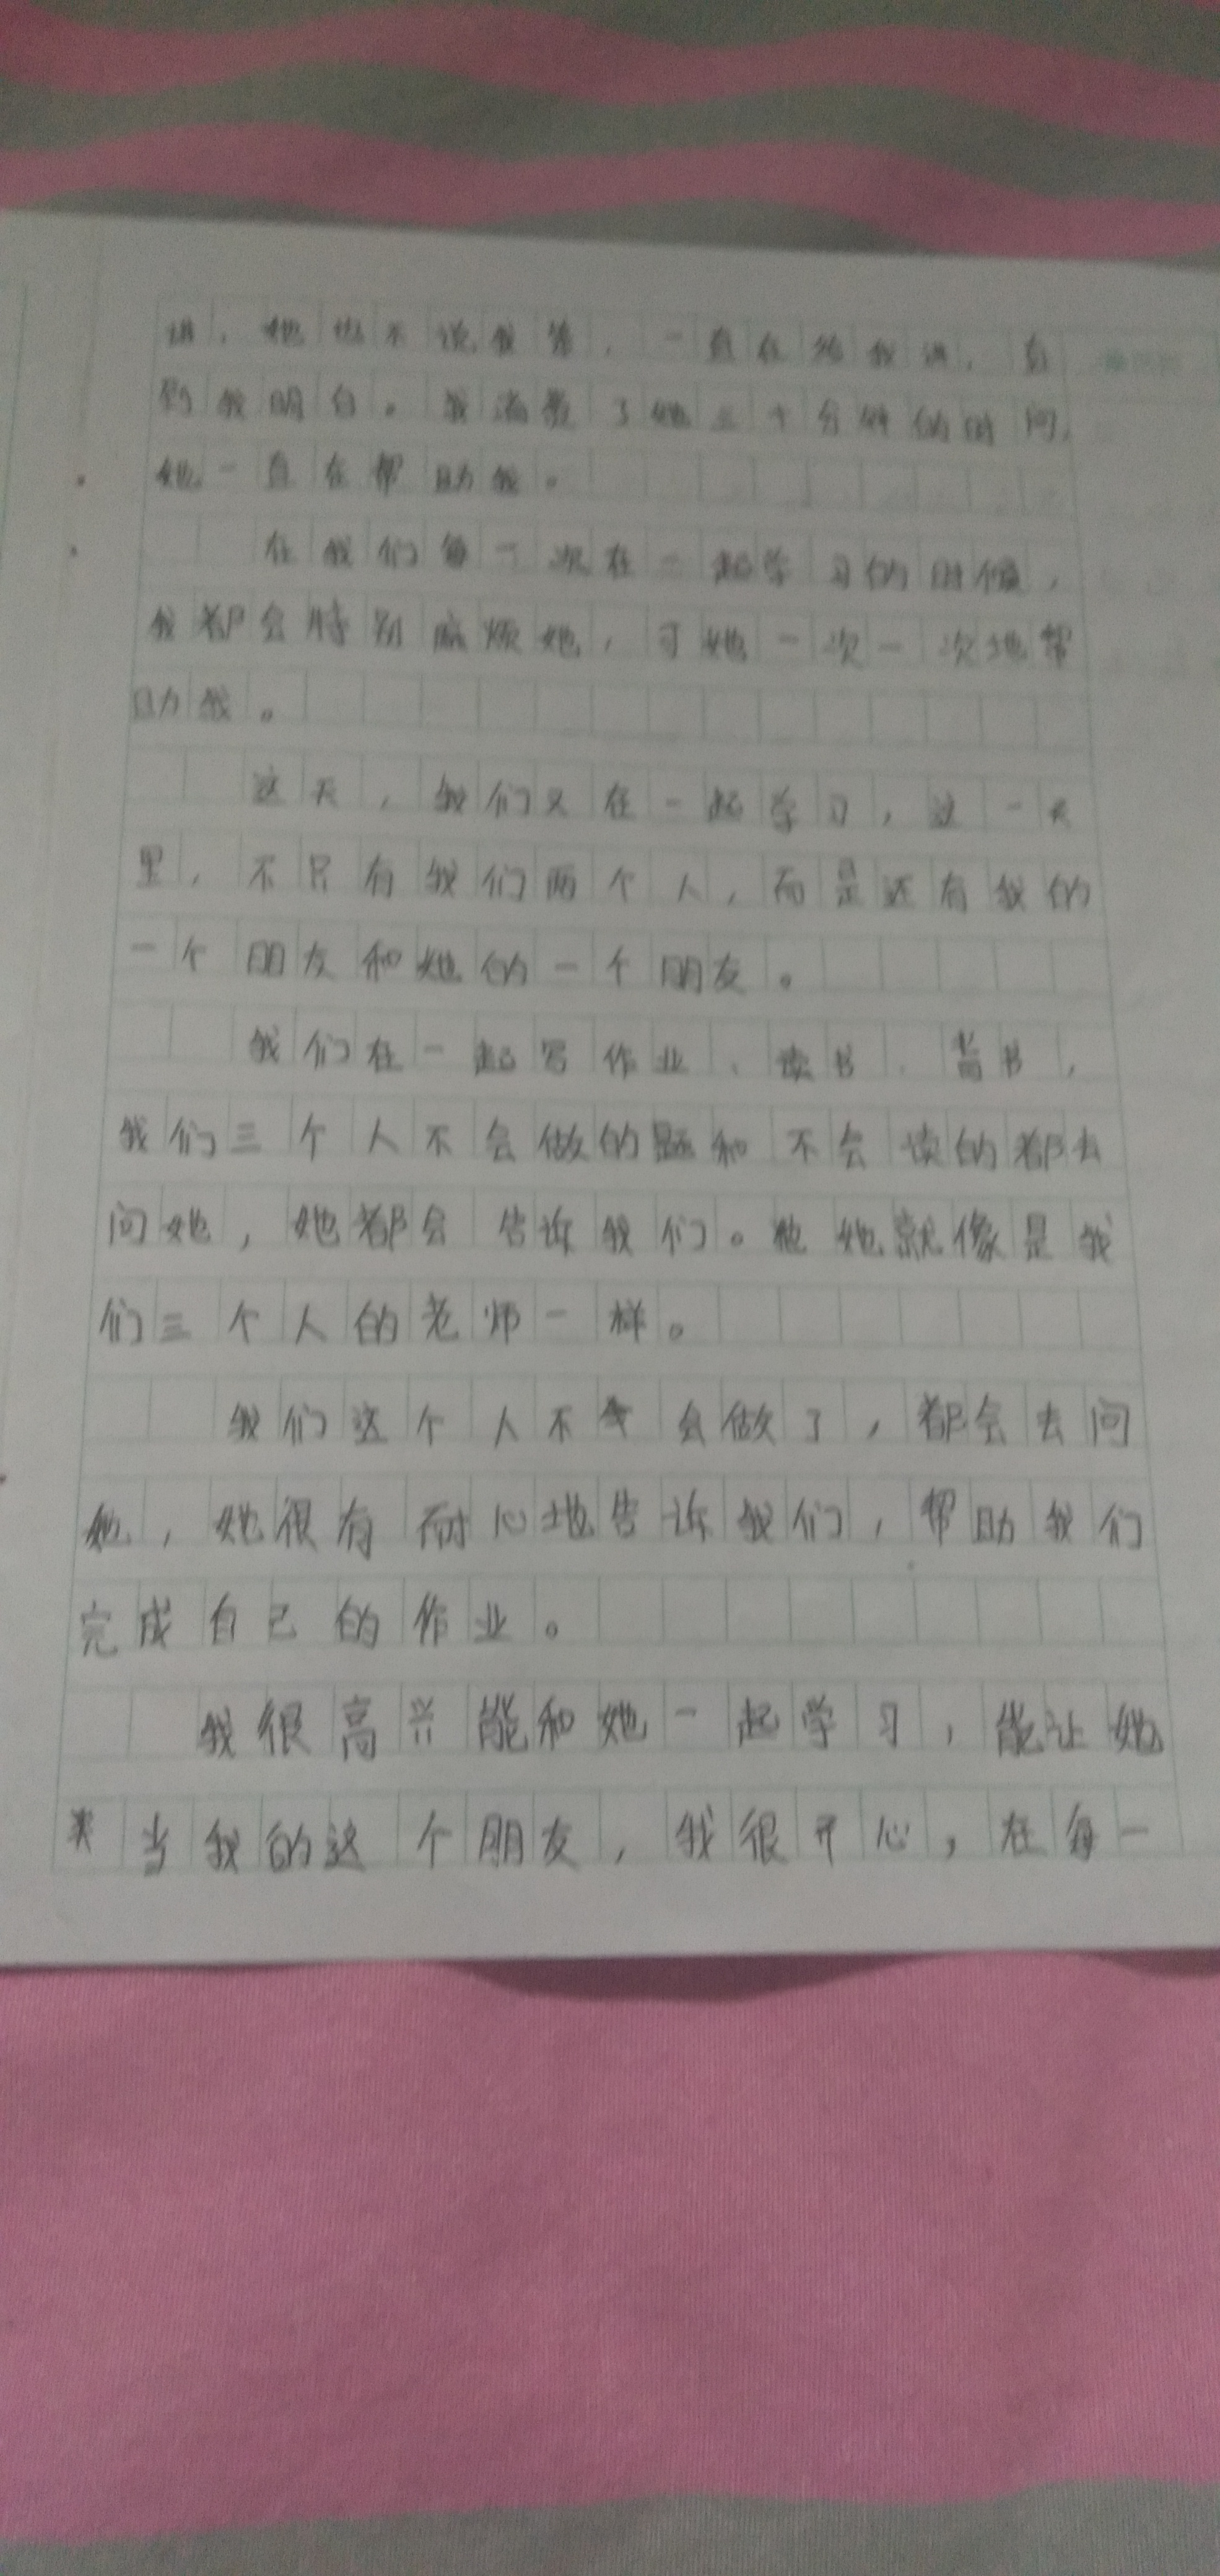 讲，她也不说我笨，一直在给我讲，直
到我明白。我消费了她三十分钟的时间，
她一直在帮助我。
在我们每一次在一起学习的时候，
我都会特别麻烦她，可她一次一次地帮
助我。
这天，我们又在一起学习，这一天
里，不只有我们两个人，而是还有我的
一个朋友和她的一个朋友。
我们在一起写作业、读书、背书，
我们三个人不会做的题和不会读的都去
问她，她都会告诉我们。她就像是我
们三个人的老师一样。
我们这个人不会做了，都会去问
她，她很有耐心地告诉我们，帮助我们
完成自己的作业。
我很高兴能和她一起学习，能让她
当我的这个朋友，我很开心，在每一